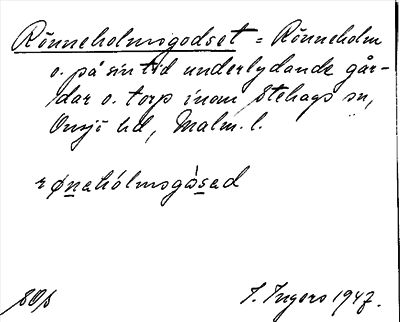 Rönneholmsgodset = Rönneholm
o. på sin tid underlydande går-
dar o. torp inom Stehags sn,
Onsjö hd, Malm. l.
rønahólmsgòsad
SOf
I. Ingers 1947.